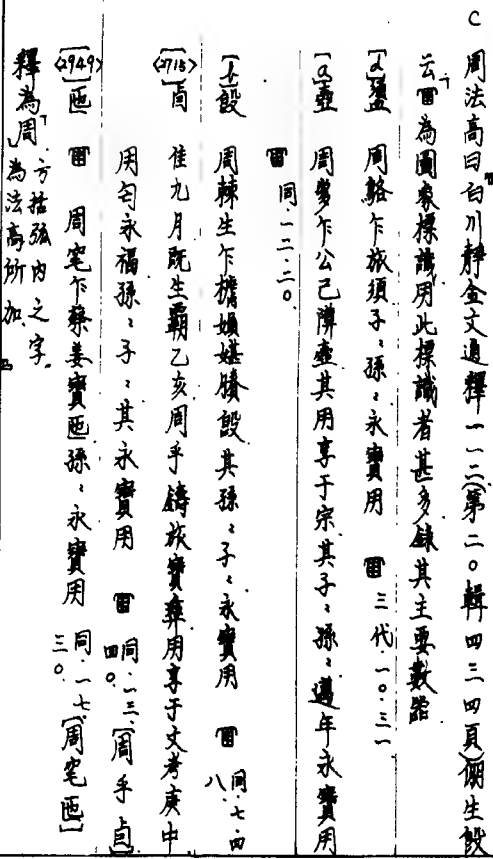 C 周法高曰白川靜金文通釋一一二(第二〇輯四三四頁)倗生𣪘
云「𤰇為圖象標識用此標識者甚多錄其主要數器
[d]盨 周貉乍旅須子〻孫〻永寶用 𤰇 三代·一〇·三一
[a]壺 周㝬乍公己障壺其用享于宗其子〻孫〻邁年永寶用
同·一二·二〇
[b]𣪘 周棘生乍楷媜媅媵𣪘其孫〻子〻永寶用 同·七·四八
<2715>[卣] 隹九月既生霸乙亥周乎鑄旅寶彝用享于文考庚中
用匄永福孫〻子〻其永寶用 同·一三·四〇 [周乎卣]
<2949>[匜] 周宅乍救姜寶匜孫〻永寶用 同·一七·三〇 [周宅匜]
釋為周」方括弧內之字為法高所加